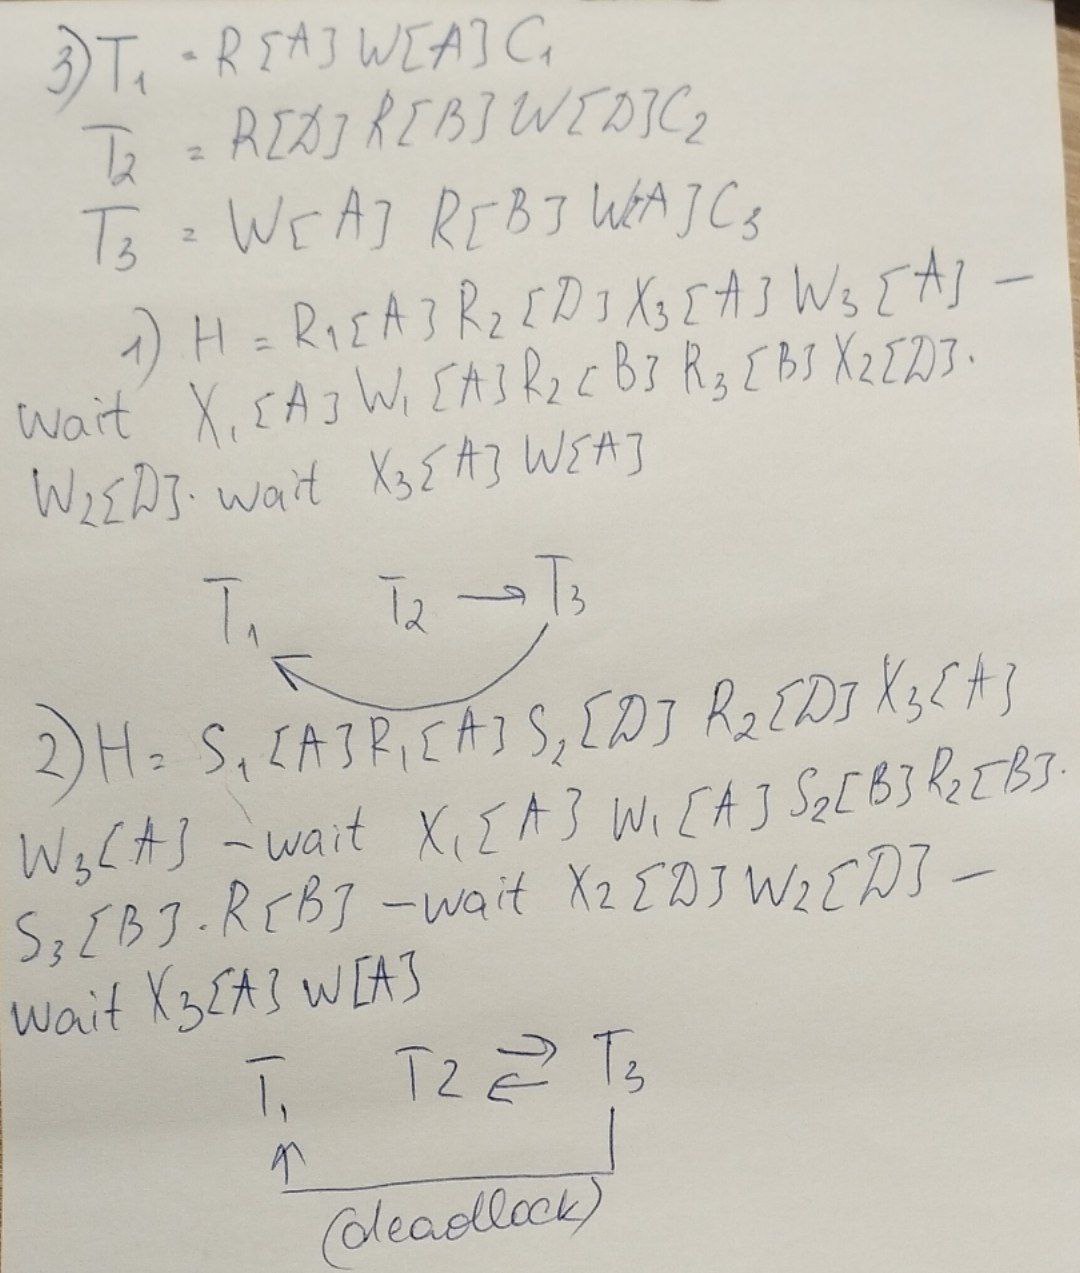 3) T₁ = R[A] W[A] C₁
T₂ = R[D] R[B] W[D] C₂
T₃ = W[A] R[B] W[A] C₃
1) H = R₁[A] R₂[D] X₃[A] W₃[A] –
wait X₁[A] W₁[A] R₂[B] R₃[B] X₂[D].
W₂[D]. wait X₃[A] W[A]
T₁ T₂ → T₃
2) H = S₁[A] R₁[A] S₂[D] R₂[D] X₃[A]
W₃[A] – wait X₁[A] W₁[A] S₂[B] R₂[B].
S₃[B]. R[B] – wait X₂[D] W₂[D] –
wait X₃[A] W[A]
T₁ T2 ⇄ T₃
(deadlock)